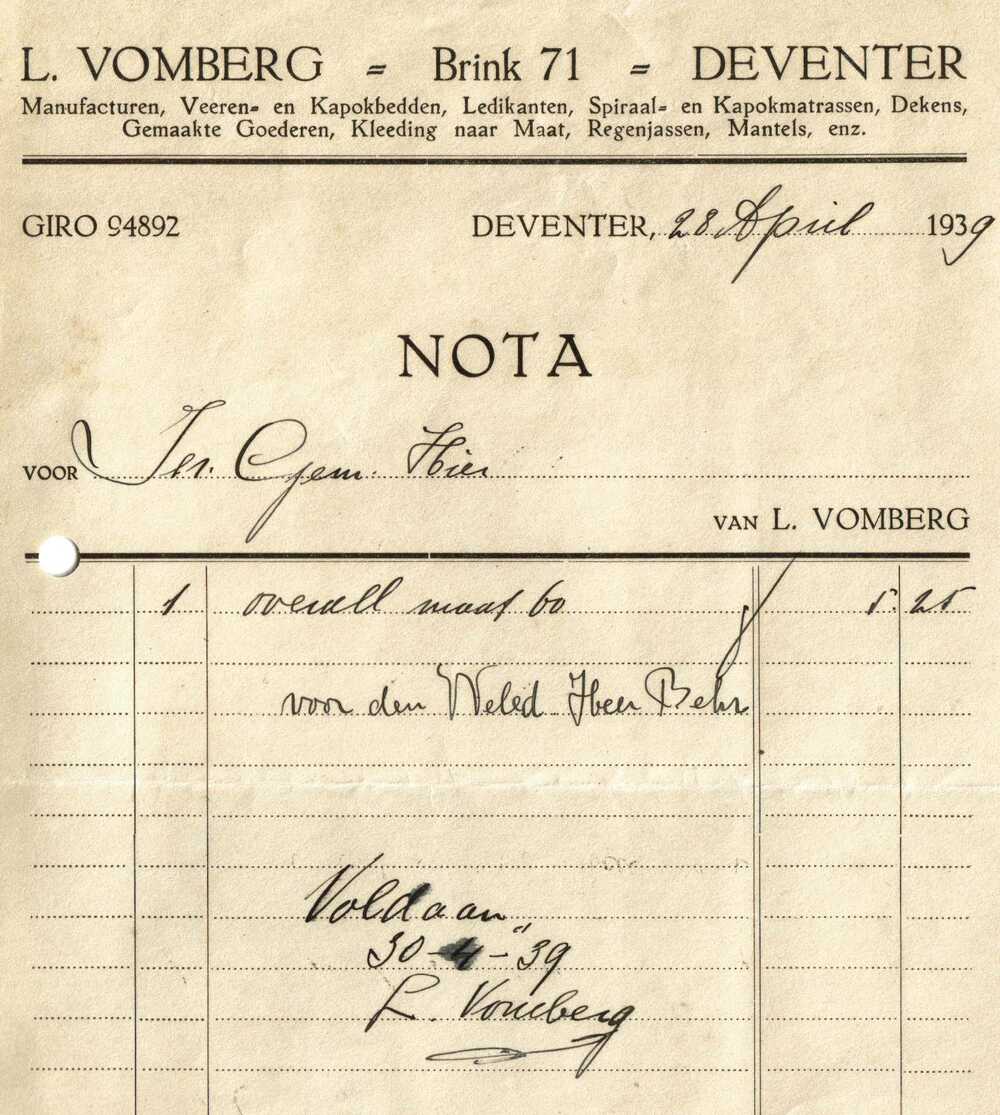 L. VOMBERG = Brink 71 = DEVENTER
Manufacturen, Veeren= en Kapokbedden, Ledikanten, Spiraal= en Kapokmatrassen, Dekens,
Gemaakte Goederen, Kleeding naar Maat, Regenjassen, Mantels, enz.
GIRO 94892 DEVENTER, 28 April 1939
NOTA
VOOR Isr. Gem. Hier
VAN L. VOMBERG
1 overall maat 60 f 5.25
voor den Weled. Heer Behr
Voldaan
30-4-'39
L. Vomberg